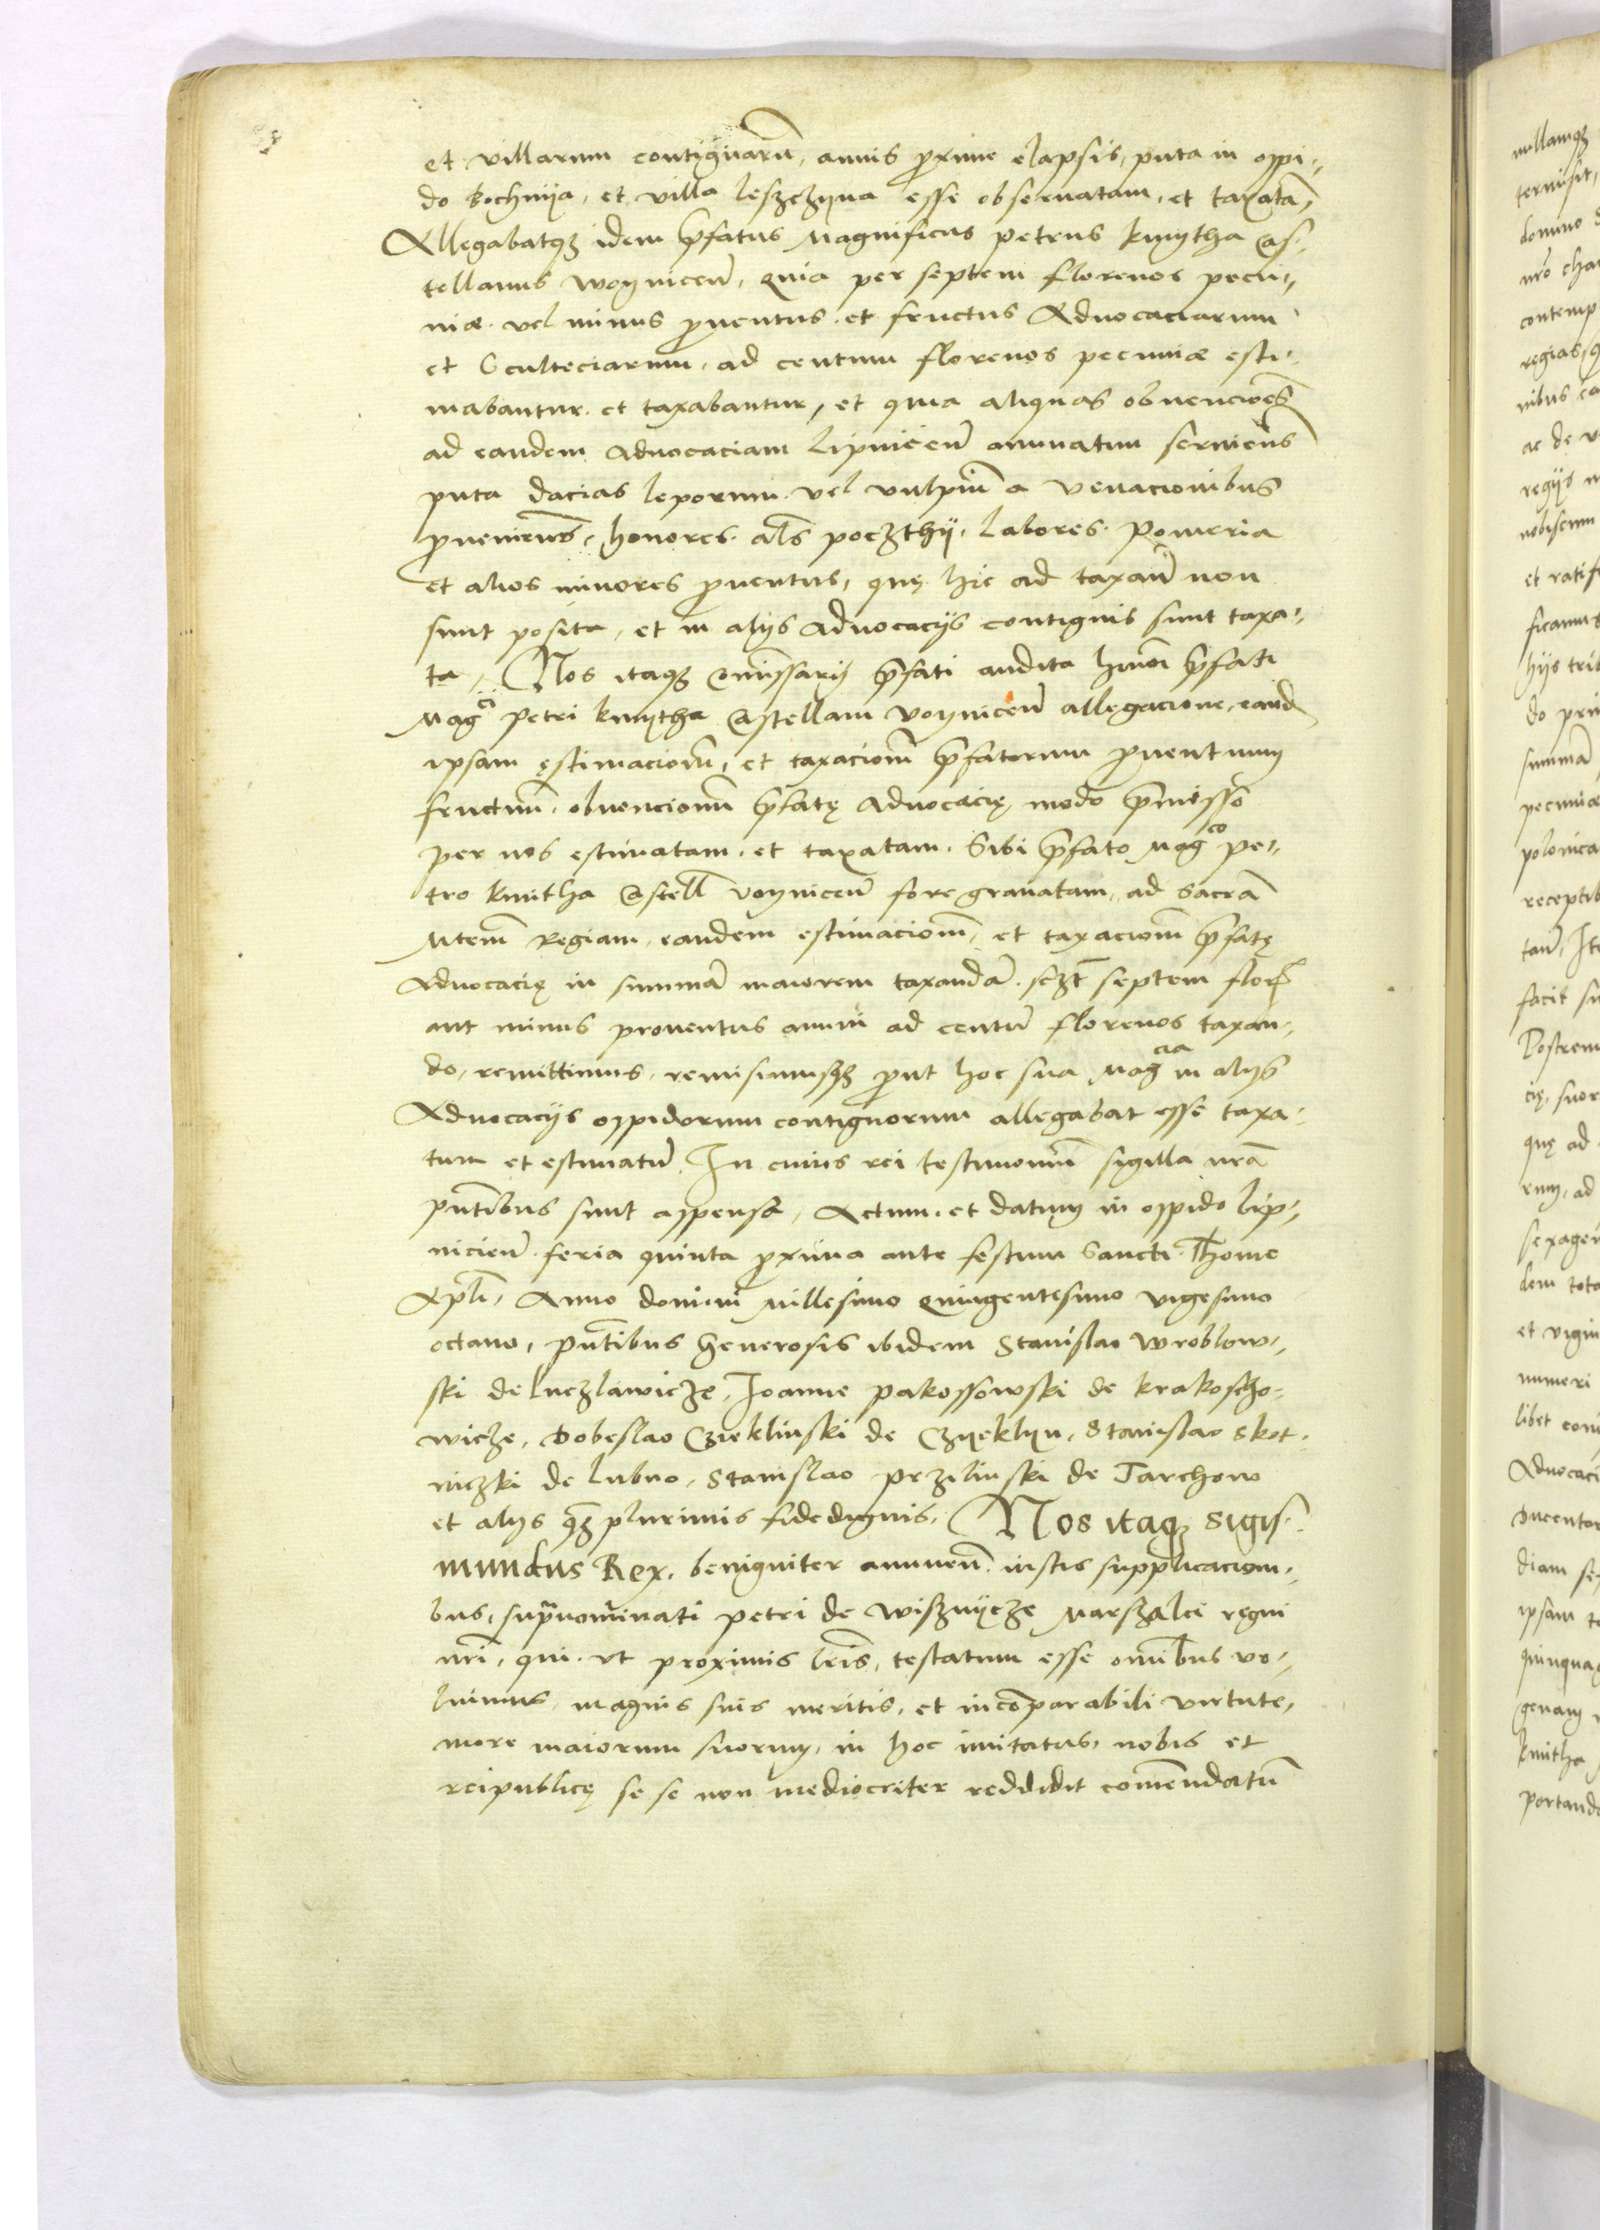 et villarum contiguarū, annis ꝓxime elapsis, puta in oppi-
do Bochnija, et villa leszcżyna esse obseruatam, et taxatā,
Allegabatqȝ idem p̄fatus Magnificus petrus kmytha Cas-
tellanus woyniceñ, quia per septem florenos pecu-
niæ vel minus ꝓuentus et fructus Aduocaciarum
et Sculteciarum, ad centum florenos pecuniæ esti-
mabantur et taxabantur, et quia aliquas obuencioēs
ad eandem Aduocaciam Lipniceñ annuatim seruieñs
puta dacias leporum vel vulpiū a venacionibus
ꝓuenieñs, honores als poczthÿ, labores Pomeria
et alios minores ꝓuentus, quę hic ad taxam̄ non
sunt posita, et in alijs Aduocacijs contiguis sunt taxa-
ta, Nos itaqȝ Com̄issarij p̄fati audita hmōi p̄fati
Magci petri kmytha Castellani voyniceñ allegacione, eand
ipsam ęstimacionē, et taxacionē p̄fatorum ꝓuentuum
fructuū obuencionū p̄fatę Aduocacię modo p̄misso
per nos estimatam et taxatam Sibi p̄fato Magco pe-
tro kmitha Castell voyniceñ fore grauatam, ad Sacrā
Mtem̄ Regiam, eandem estimacionē, et taxacionē p̄fatę
Aduocacię in summā maiorem taxandā sczt septem flor
aut minus prouentus annui ad centū florenos taxan-
do, remittimus, remisimusqȝ ꝓut hoc sua Magcia in alijs
Aduocacijs oppidorum contiguorum allegabat esse taxa-
tum et estimatū. In cuius rei testimoniū sigilla nr̄a
pn̄tibus sunt appensa, Actum et datum in oppido lip-
nicieñ feria quinta ꝓxima ante festum Sancti Thome
Apli, Anno domini Millesimo Quingentesimo vigesimo
octauo, pn̄tibus Generosis ibidem Stanislao Wroblow-
ski de luczlawicze, Joanne pakossowski de krakoscho-
wicze, Dobeslao Czieklinski de Czyeklyn, Stanislao Skot-
niczki de lubno, Stanislao pezilinski de Tarchow
et alijs qȝ plurimis fidedignis. Nos itaqȝ Sigis-
mundus Rex, benigniter annueñ iustis supplicacioni-
bus, supranominati petri de wisznÿcze Marszalci regni
nr̄i, qui vt proximis lr̄is, testatum esse omībus vo-
luimus magnis suis meritis, et incōparabili virtute,
more maiorum suorum, in hoc imitatus, nobis et
reipublicę se se non mediocriter reddidit comendatū